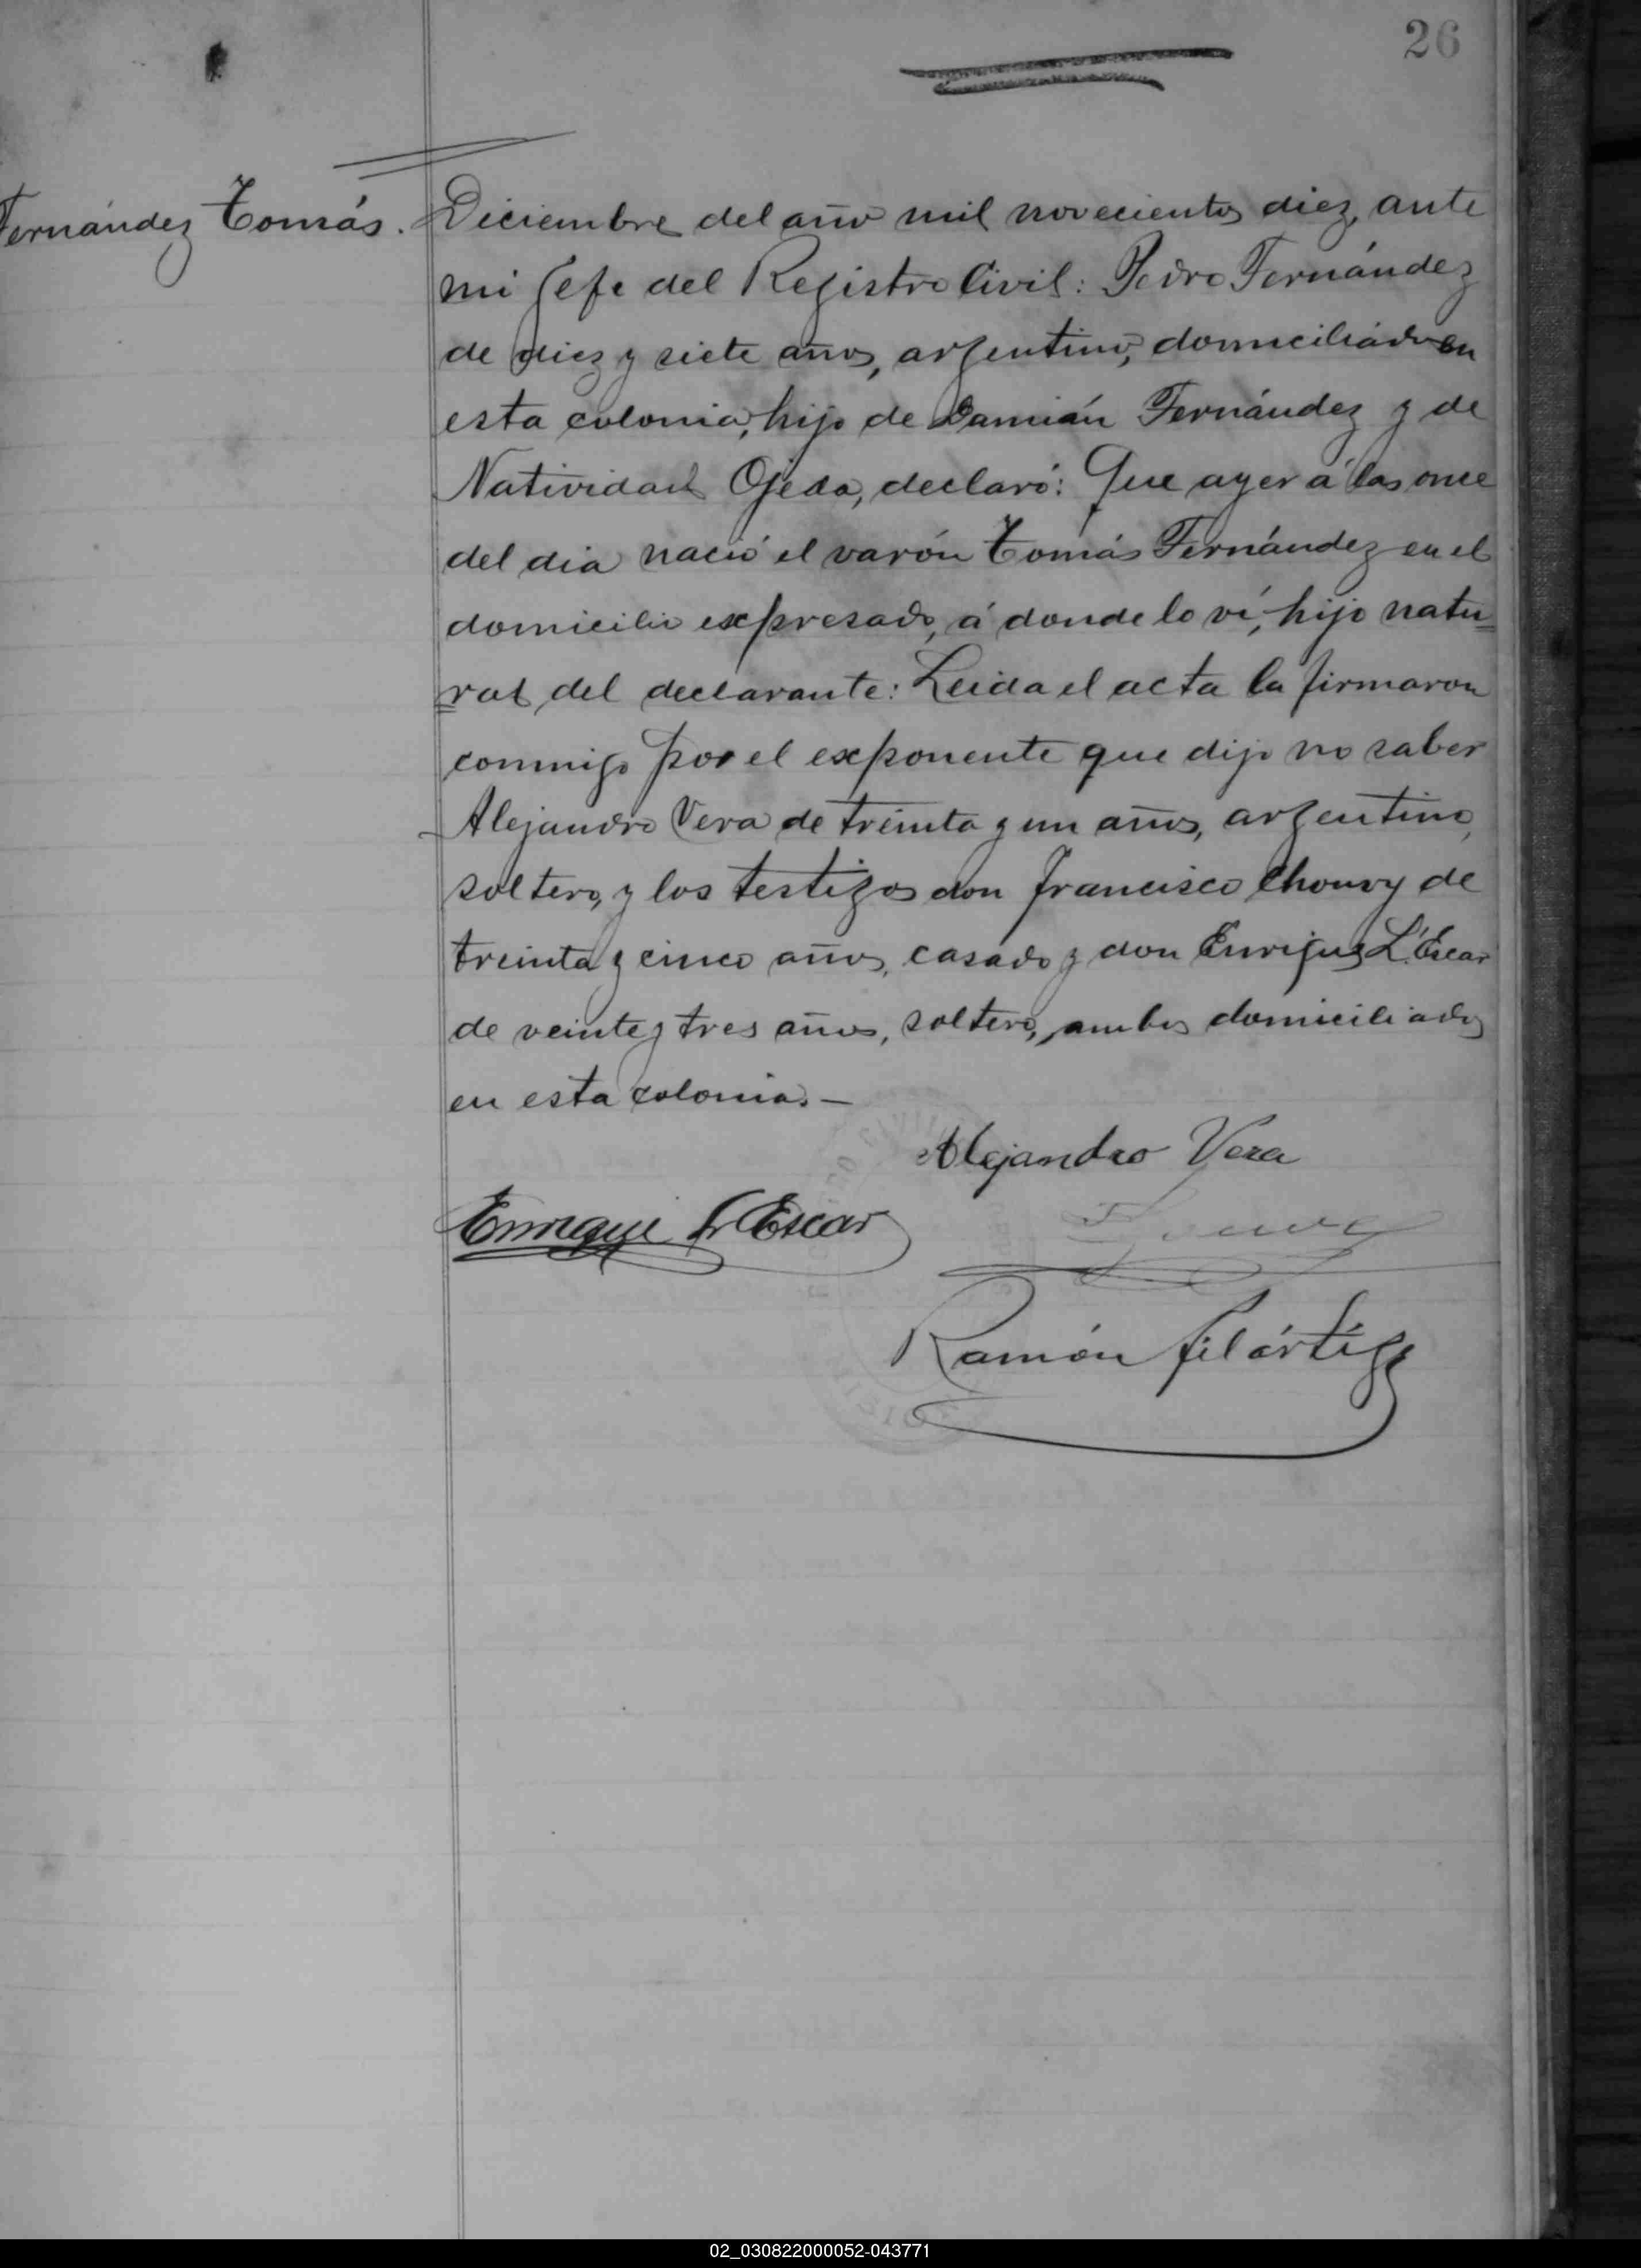 26
Fernández Tomás.
Diciembre del año mil novecientos diez, ante
mi Jefe del Registro Civil: Pedro Fernández
de diez y siete años, argentino, domiciliado en
esta colonia, hijo de Damián Fernández y de
Natividad Ojeda, declaró: Que ayer á las once
del dia nació el varón Tomás Fernández en el
domicilio expresado, á donde lo ví, hijo natu=
=ral del declarante: Leida el acta la firmaron
conmigo por el exponente que dijo no saber
Alejandro Vera de treinta y un años, argentino,
soltero, y los testigos don Francisco Chouvy de
treinta y cinco años, casado y don Enrique L'Escar
de veinte y tres años, soltero, ambos domiciliados
en esta colonia.—
Alejandro Vera
Enrique L'Escar
Ramón Filártiga
02_030822000052-043771